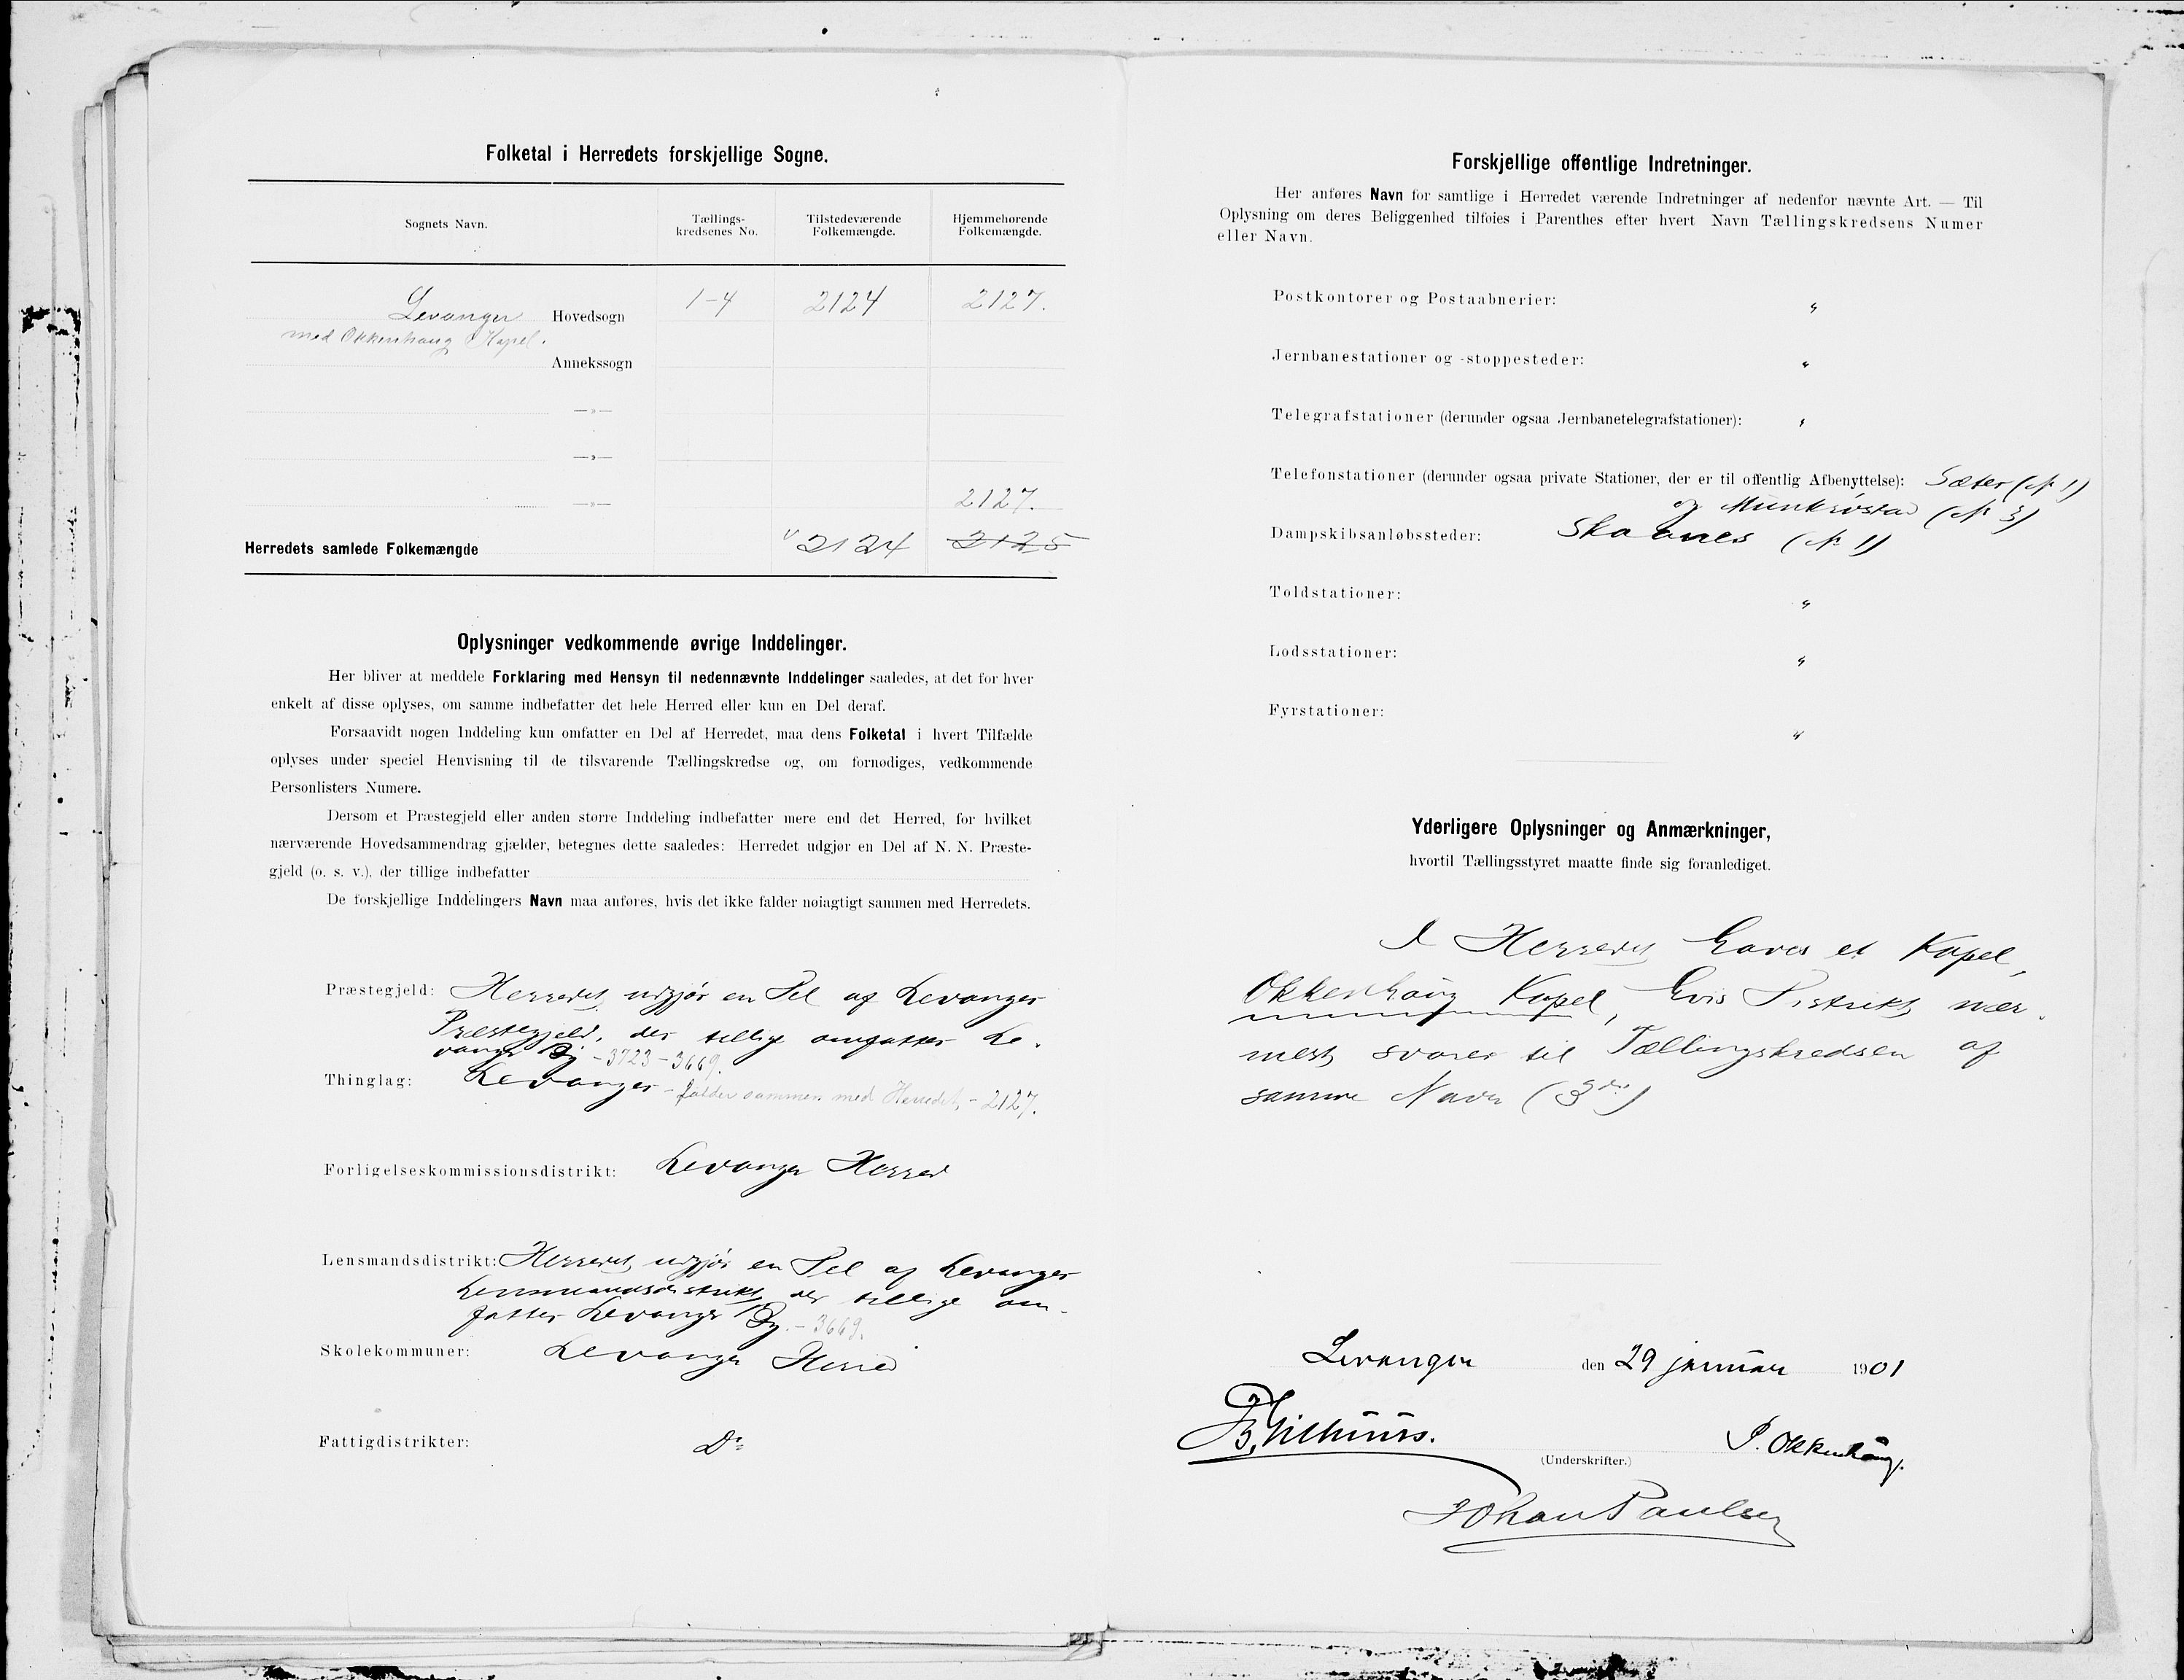 Folketal i Herredets forskjellige Sogne.
Sognets Navn. Tællings-kredsenes No. Tilstedeværende Folkemængde. Hjemmehørende Folkemængde.
Levanger Hovedsogn 1-4 2124 2127.
med Okkenhaug Kapel.
Annekssogn
—»—
—»—
—»— 2127.
Herredets samlede Folkemængde 2124 2125
Oplysninger vedkommende øvrige Inddelinger.
Her bliver at meddele Forklaring med Hensyn til nedennævnte Inddelinger saaledes, at det for hver
enkelt af disse oplyses, om samme indbefatter det hele Herred eller kun en Del deraf.
Forsaavidt nogen Inddeling kun omfatter en Del af Herredet, maa dens Folketal i hvert Tilfælde
oplyses under speciel Henvisning til de tilsvarende Tællingskredse og, om fornødiges, vedkommende
Personlisters Numere.
Dersom et Præstegjeld eller anden større Inddeling indbefatter mere end det Herred, for hvilket
nærværende Hovedsammendrag gjælder, betegnes dette saaledes: Herredet udgjør en Del af N. N. Præste-
gjeld (o. s. v.), der tillige indbefatter
De forskjellige Inddelingers Navn maa anføres, hvis det ikke falder nøiagtigt sammen med Herredets.
Præstegjeld: Herredet udgjør en Del af Levanger
Præstegjeld, der tillige omfatter Le-
vanger By - 3723 - 3669.
Thinglag: Levanger - falder sammen med Herredet, - 2127.
Forligelseskommissionsdistrikt: Levanger Herred
Lensmandsdistrikt: Herredet udgjør en Del af Levanger
Lensmandsdistrikt, der tillige om-
fatter Levanger By. - 3669.
Skolekommuner: Levanger Herred
Fattigdistrikter: Do
Forskjellige offentlige Indretninger.
Her anføres Navn for samtlige i Herredet værende Indretninger af nedenfor nævnte Art. — Til
Oplysning om deres Beliggenhed tilføies i Parenthes efter hvert Navn Tællingskredsens Numer
eller Navn.
Postkontorer og Postaabnerier: "
Jernbanestationer og -stoppesteder: "
Telegrafstationer (derunder ogsaa Jernbanetelegrafstationer): "
Telefonstationer (derunder ogsaa private Stationer, der er til offentlig Afbenyttelse): Sæter (No 1)
og Munkrøstad (No 3)
Dampskibsanløbssteder: Skaanes (No 1)
Toldstationer: "
Lodsstationer: "
Fyrstationer: "
Yderligere Oplysninger og Anmærkninger,
hvortil Tællingsstyret maatte finde sig foranlediget.
I Herredet haves et Kapel,
Okkenhaug Kapel, hvis Distrikt nær-
mest svarer til Tællingskredsen af
samme Navn (3die)
Levanger den 29 januar 1901
P. Okkenhaug.
(Underskrifter.)
Johan Paulsen